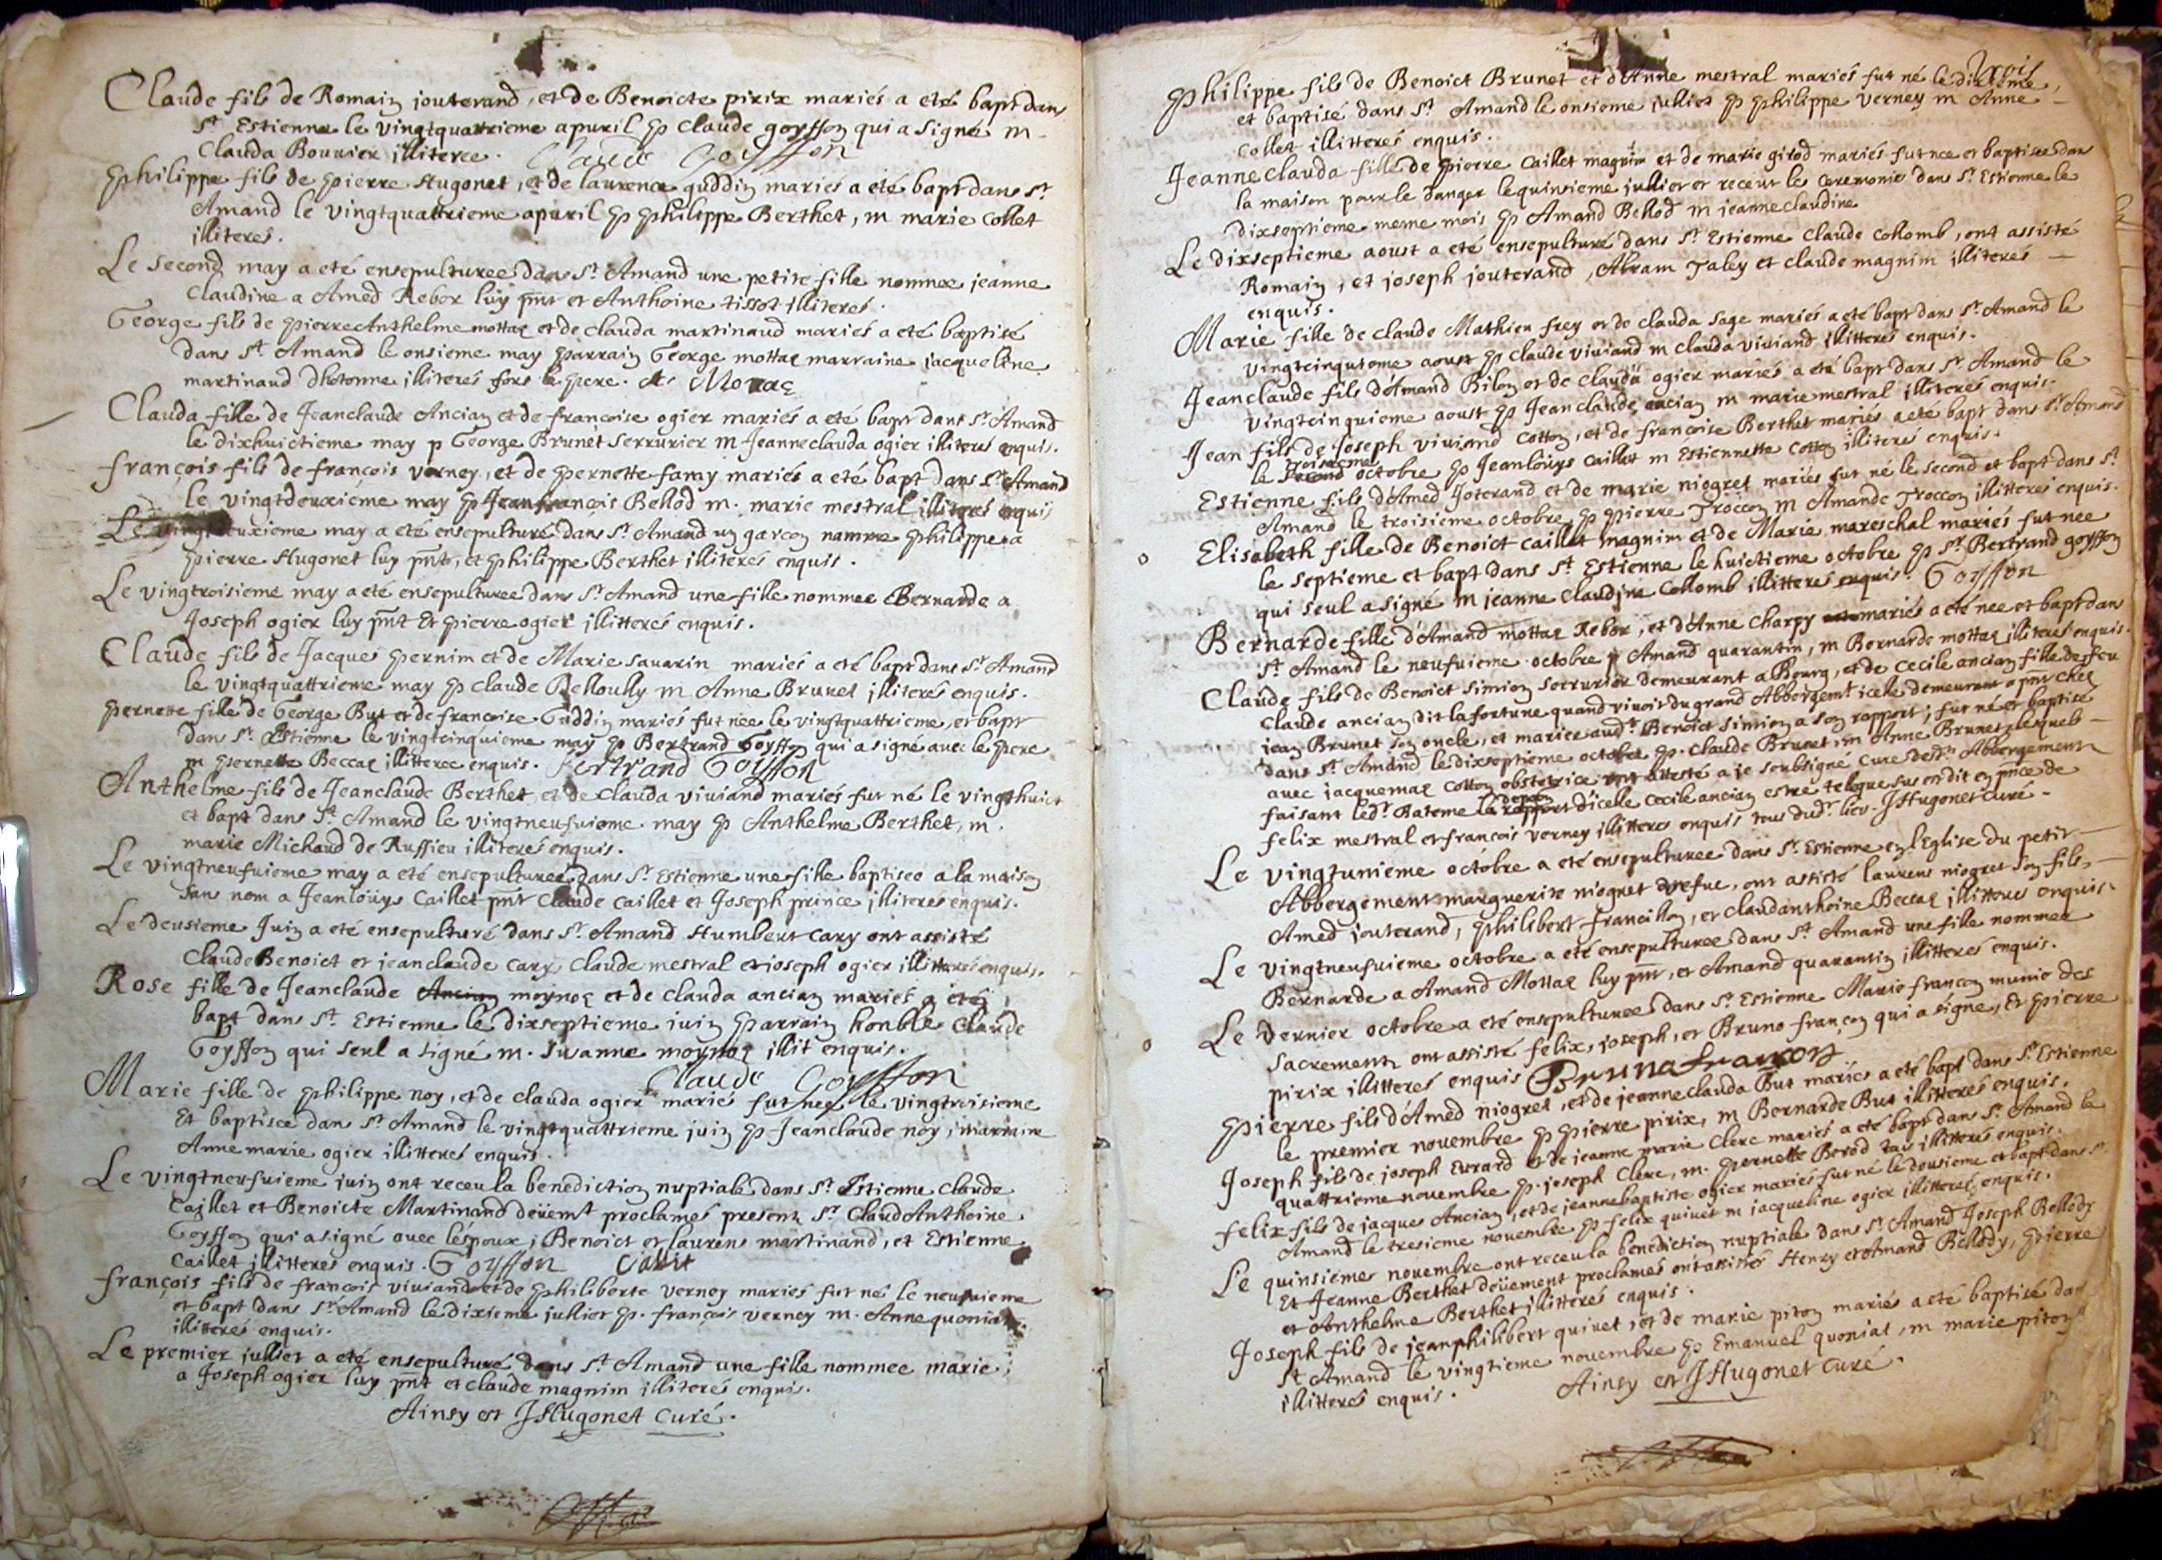 Claude fils de Romain jouterand, et de Benoicte pirix mariés a eté bapt dans
St Estienne le vingtquattrieme apuril p Claude goyffon qui a signé m
Clauda Bouuier illiteree. Claude Goyffon
philippe fils de pierre Hugonet, et de laurence guddin mariés a eté bapt dans St
Amand le vingtquattrieme apuril p philippe Berthet, m marie Collet
illiterés.
Le second may a eté ensepulturee dans St Amand une petite fille nommee jeanne
Claudine a Amed Rebor luy pnt et Anthoine tissot illiterés.
George fils de pierreAnthelme mottaz et de Clauda martinaud mariés a eté baptisé
dans St Amand le onsieme may parrain George mottaz marraine jacqueline
martinaud dhotonne illiterés fors le pere. Motaz
Clauda fille de Jeanclaude Ancian et de francoise ogier mariés a eté bapt dans St Amand
le dixhuictieme may p George Brunet Serrurier m Jeanneclauda ogier illiterés enquis.
françois fils de françois verney, et de pernette famy mariés a eté bapt dans St Amand
le vingtdeuxiéme may p Jeanfrançois Bellod m. marie mestral illiterés enquis
Le vingtdeuxieme may a eté ensepulturé dans St Amand un garcon nomme philippe a
pierre Hugonet luy pnt, et philippe Berthet illiterés enquis.
Le vingtroisieme may a eté ensepulturee dans St Amand une fille nommee Bernarde a
Joseph ogier luy pnt Et pierre ogier illitterés enquis.
Claude fils de Jacques pernim et de Marie Sauarin mariés a eté bapt dans St Amand
le vingtquattrieme may p Claude Bellouky m Anne Brunet illiterés enquis.
pernette fille de George But et de francoise Guddin mariés fut née le vingtquattrieme, et bapt
dans St Estienne le vingtcinquieme may p Bertrand Goyffon qui a signé auec le pere
m pernette Beccaz illitteree enquis. Bertrand Goiffon
Anthelme fils de Jeanclaude Berthet, et de Clauda viuiand mariés fut né le vingthuict
et bapt dans St Amand le vingtneufuieme may p Anthelme Berthet, m.
marie Michaud de Ruffieu illiterés enquis.
Le vingtneufuieme may a eté ensepulturee dans St Estienne une fille baptisee a la maison
sans nom a Jeanloüys Caillet pnt Claude Caillet et Joseph prince illiterés enquis.
Le deusieme Juin a eté ensepulturé dans St Amand Humbert Cary ont assisté
Claude Benoict et jeanclaude Cary, Claude mestral et joseph ogier illitterés enquis.
Rose fille de Jeanclaude Ancian moynoz et de Clauda ancian mariés a eté
bapt dans St Estienne le dixseptieme juin parrain honble Claude
Goyffon qui seul a signé m. Susanne moynoz illit enquis.
Claude Goyffon
Marie fille de philippe noy, et de Clauda ogier mariés fut nee le vingtroisieme
Et baptisée dans St Amand le vingtquattrieme juin p Jeanclaude noy, marraine
Anne marie ogier illitterés enquis.
Le vingtneufuieme juin ont receu la benediction nuptiale dans St Estienne Claude
Caillet et Benoicte Martinand deüemt proclamés presens Sr ClaudAnthoine
Goyffon qui a signé auec léspoux, Benoict et laurens martinand, et Estienne
Caillet illitterés enquis. Goyffon Caliet
françois fils de françois viuiand et de philiberte verney mariés fut né le neufuieme
et bapt dans St Amand le dixieme julliet p. françois verney m. Anne quoniat
illitterés enquis.
Le premier julliet a eté ensepulturé dans St Amand une fille nommee marie
a Joseph ogier luy pnt et claude magnim illiterés enquis.
Ainsy est JHugonet Curé.
Trois
philippe fils de Benoict Brunet et d'Anne mestral mariés fut né le dixieme,
et baptisé dans St Amand le onsieme julliet p philippe verney m Anne
Collet illitterés enquis.
Jeanneclauda fille de pierre Caillet magnim et de marie girod mariés fut nee et baptisee dans
la maison pour le danger le quinsieme julliet et receut les ceremonies dans St Estienne le
dixseptieme meme mois p Amand Bellod m jeanneclaudine
Le dixseptieme aoust a eté ensepulturé dans St Estienne Claude Collomb, ont assisté
Romain, et joseph jouterand, Abram Taley et claude magnim illiterés
enquis.
Marie fille de Claude Mathieu frey et de Clauda Sage mariés a eté bapt dans St Amand le
vingtcinquieme aoust p Claude viuiand m Clauda viuiand illitterés enquis.
Jeanclaude fils d'Amand Bilon et de Clauda ogier mariés a eté bapt dans St Amand le
vingtcinquieme aoust p Jeanclaude ancian m marie mestral illiterés enquis.
Jean fils de Joseph viuiand Cotton, et de françoise Berthet mariés a eté bapt dans St Amand
troisieme
le second octobre p Jeanloüys Caillet m Estiennette Cotton illiterés enquis.
Estienne fils d'Amed Joterand et de marie niogret mariés fut né le second et bapt dans St
Amand le troisieme octobre p pierre Troccon m Amande Troccon illitterés enquis.
Elisabeth fille de Benoict Caillet magnim et de Marie mareschal mariés fut nee
le septieme et bapt dans St Estienne le huictieme octobre p Sr Bertrand goyffon
qui seul a signé m jeanne Claudine Collomb illitteree enquis. Goyffon
Bernarde fille d'Amand mottaz Rebor, et d'Anne Charpy mariés a eté nee et bapt dans
St Amand le neufuieme octobre p Amand quarantin, m Bernarde mottaz illiterés enquis.
Claude fils de Benoict Simion serrurier demeurant a Bourg, et de Cecile ancian fille de feu
Claude ancian dit la fortune quand viuoit du grand Abbergemt icelle demeurant a pnt chez
jean Brunet son oncle, et mariee audt Benoict Simion a son rapport; fut né et baptisé
dans St Amand le dixseptieme octobre p. Claude Brunet, m Anne Brunet lesquels
auec jacquemaz Cotton obstetrice ont attesté a je soubsigné Curé desdts Abbergements
faisant ledt Bateme la depon d'icelle Cecile ancian estre telle que sus est dit en pnce de
felix mestral et francois verney illitteres enquis tous dudt lieu. JHugonet Curé.
Le vingtunieme octobre a eté ensepulturee dans St Estienne en l'Eglise du petit
Abbergement marguerite niogret vefue, ont assisté laurens niogret son fils,
Amed jouterand, philibert francillon, et Claudanthoine Beccaz illitteres enquis.
Le vingtneufuieme octobre a eté ensepulturee dans St Amand une fille nommee
Bernarde a Amand Mottaz luy pnt, et Amand quarantin illitterés enquis.
Le dernier octobre a eté ensepulturee dans St Estienne Marie françon munie des
Sacrements ont assisté felix, joseph, et Bruno françon qui a signé, Et pierre
pirix illitterés enquis Bruno françon
pierre fils d'Amed niogret, et de jeanneclauda But mariés a eté bapt dans St Estienne
le premier novembre p pierre pirix, m Bernarde But illitterés enquis.
Joseph fils de joseph Eurard et de jeanne marie Clerc mariés a eté bapt dans St Amand le
quattrieme nouembre p. joseph Clerc, m. pernette Berod tous illitterés enquis.
felix fils de jacques Ancian, et de jeannebaptiste ogier mariés fut né le deusieme et bapt dans St
Amand le tresieme novembre p felix quiuet m jacqueline ogier illitterés enquis.
Le quinsieme nouembre ont receu la benediction nuptiale dans St Amand Joseph Bellody
Et Jeanne Berthet deüement proclamés ont assistés Henry et Amand Bellody, pierre
et Anthelme Berthet illitterés enquis.
Joseph fils de jeanphilibert quiuet, et de marie piton mariés a eté baptisé dans
St Amand le vingtieme nouembre p Emanuel quoniat, m marie piton
illitterés enquis. Ainsy est JHugonet Curé.